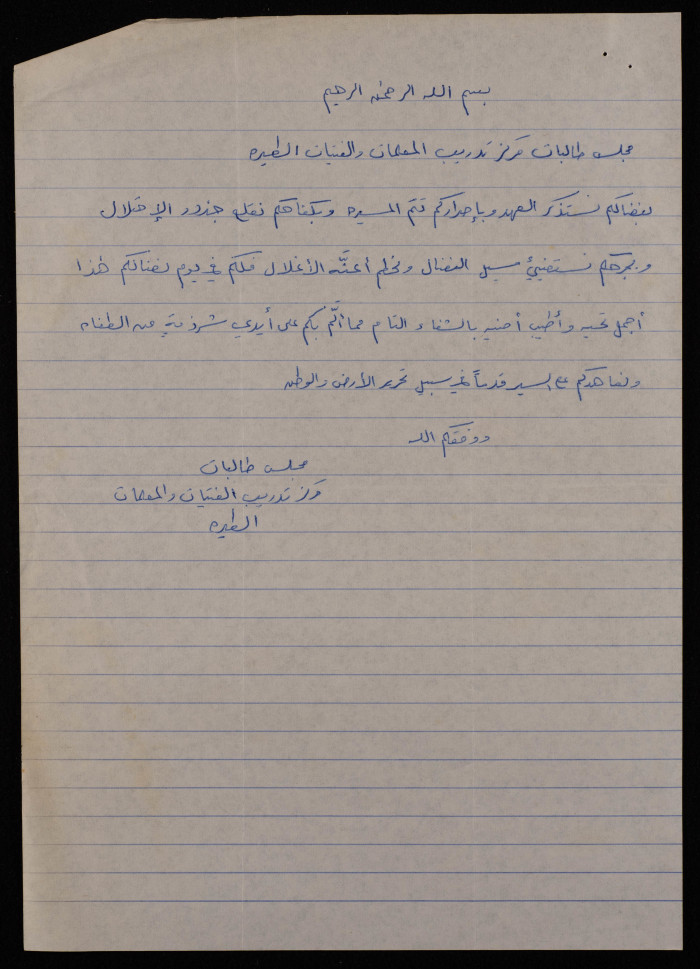 بسم الله الرحمن الرحيم
مجلس طالبات مركز تدريب المعلمات والفتيات الطيره
بنضالكم نستذكر العهد وبإصراركم تتم المسيره وبكفاحكم نقلع جذور الإحتلال
وبجرحكم نستضيئ سبيل النضال ونحطم أعنَّة الأغلال فلكم في يوم نضالكم هذا
أجمل تحيه وأطيب أمنيه بالشفاء التام مما ألَّم بكم على أيدي شرذمةٍ من الطغاه
ونعاهدكم على السير قدماً في سبيل تحرير الأرض والوطن
ووفقكم الله
مجلس طالبات
مركز تدريب الفتيات والمعلمات
الطيره